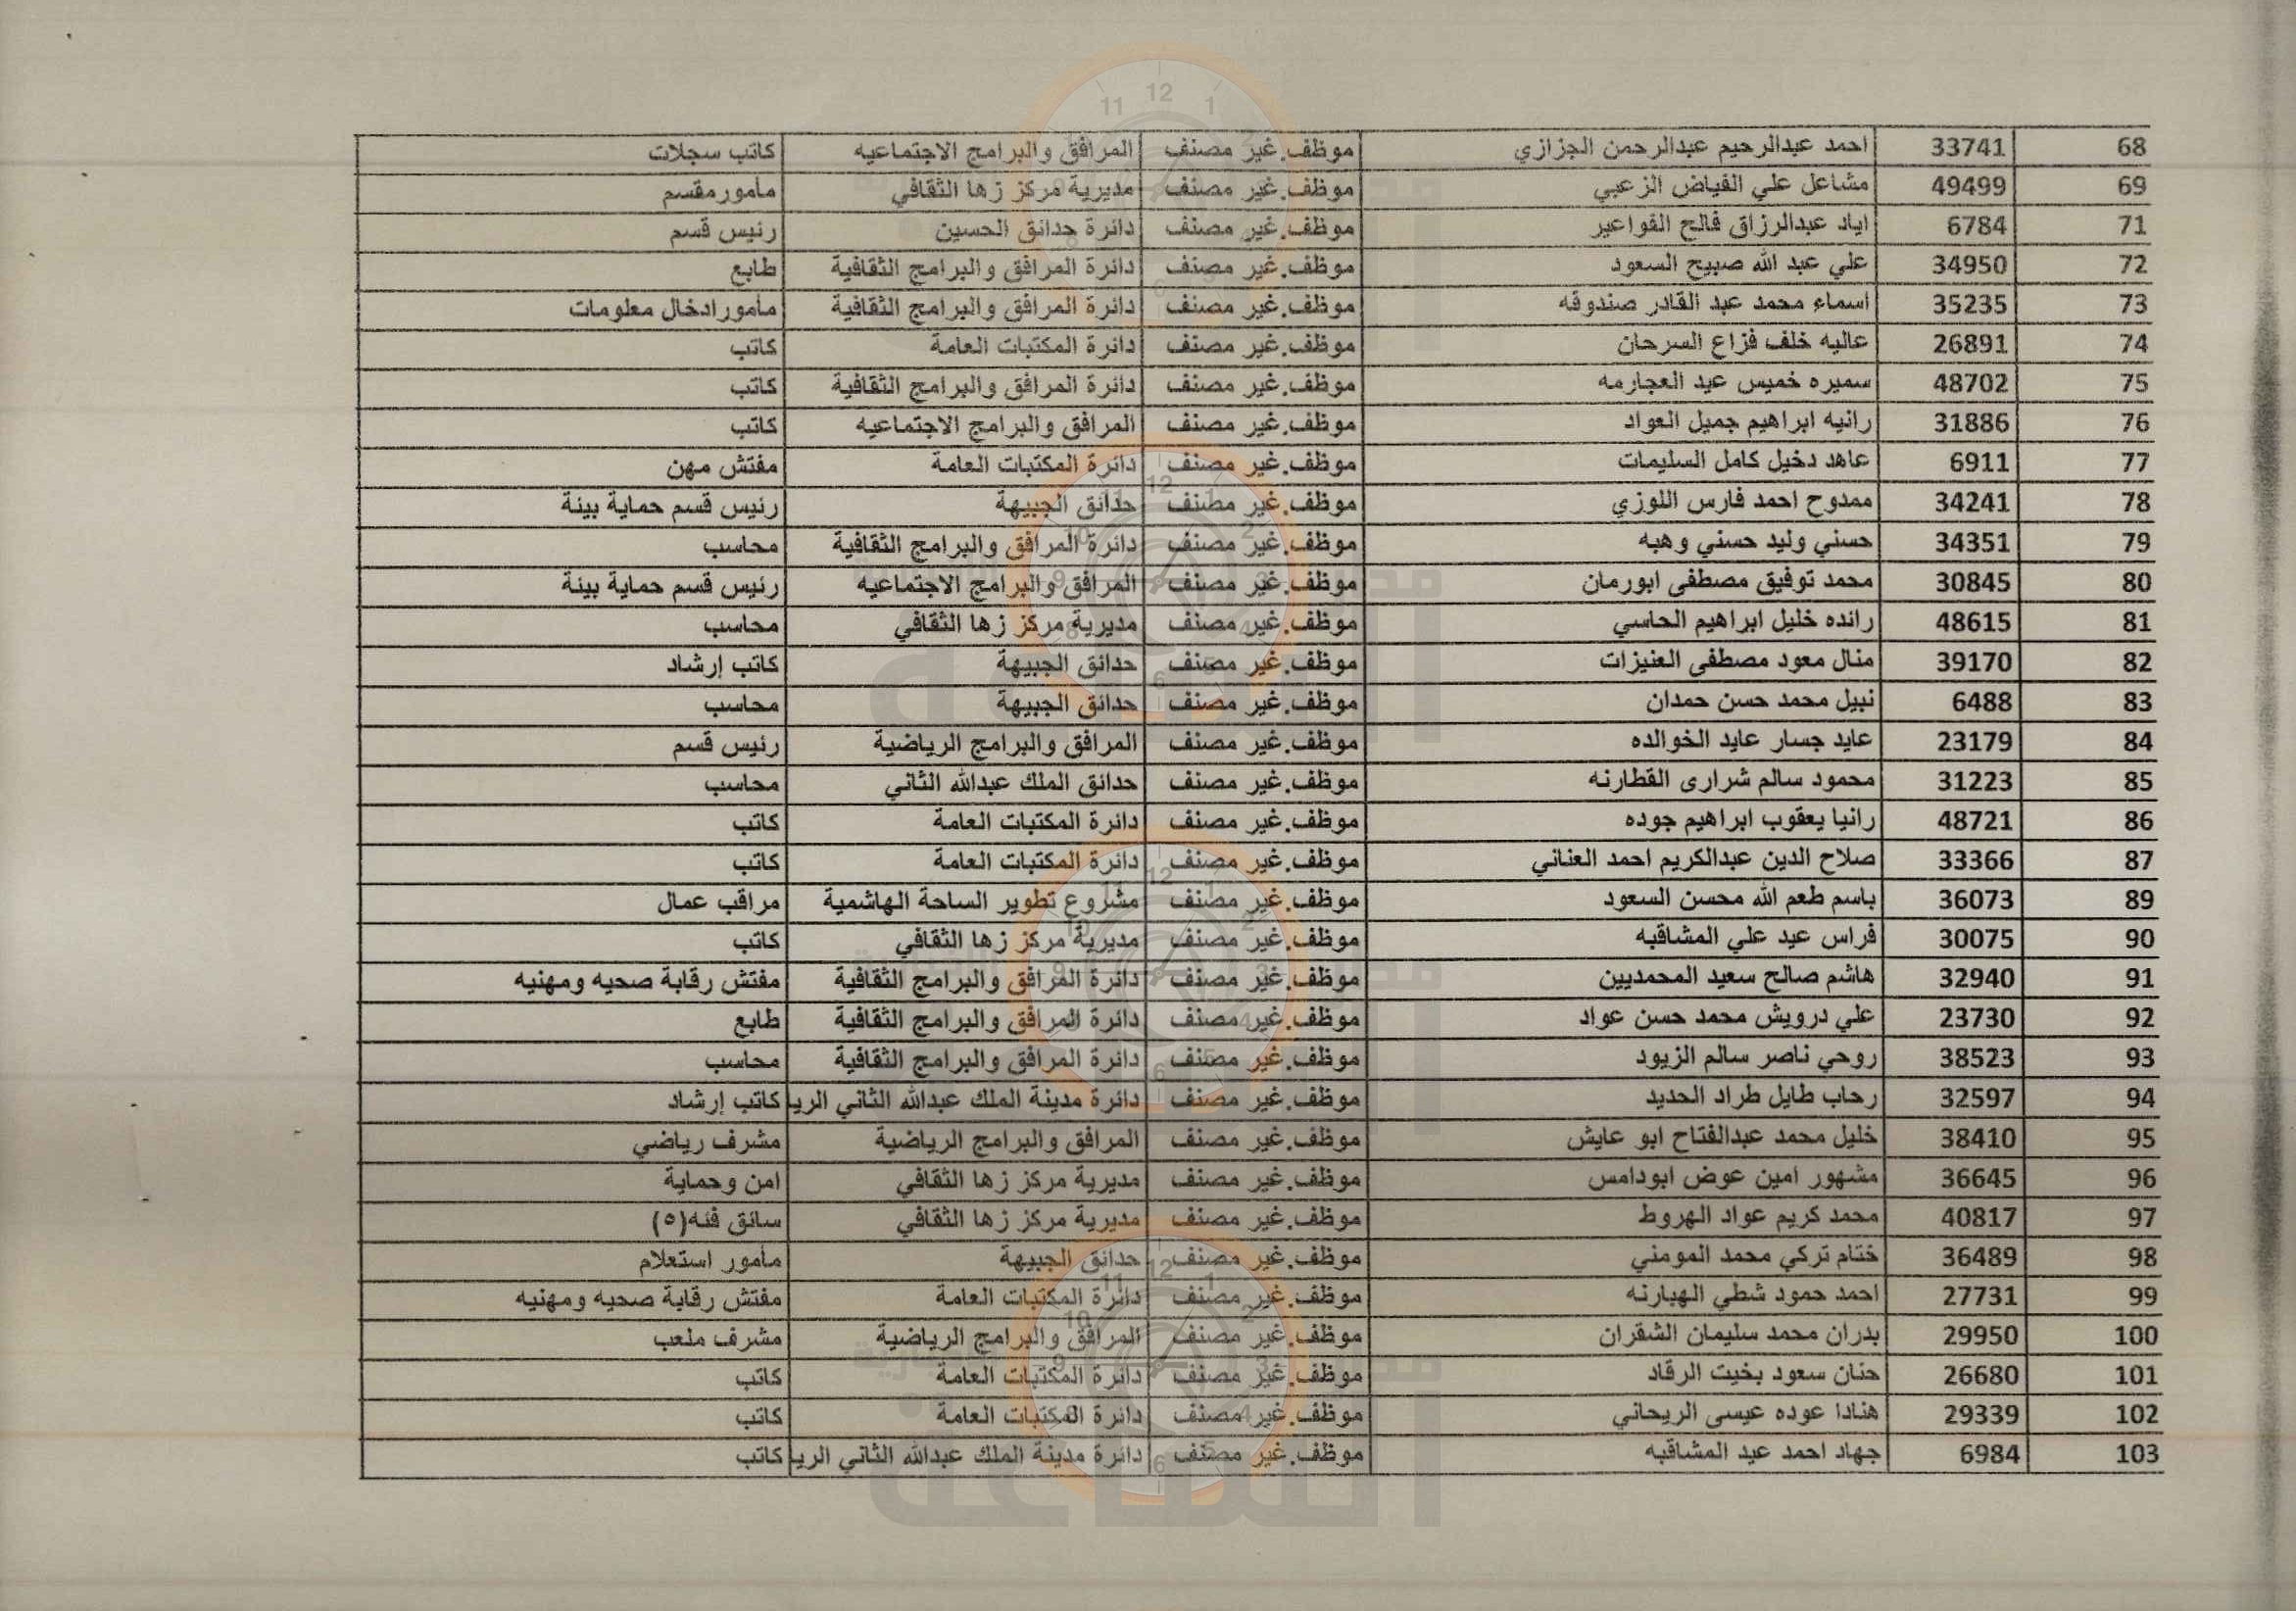 68 33741 احمد عبدالرحيم عبدالرحمن الجزازي موظف.غير مصنف المرافق والبرامج الاجتماعيه كاتب سجلات
69 49499 مشاعل علي الفياض الزعبي موظف.غير مصنف مديرية مركز زها الثقافي مأمورمقسم
71 6784 اياد عبدالرزاق فالح القواعير موظف.غير مصنف دائرة حدائق الحسين رئيس قسم
72 34950 علي عبد الله صبيح السعود موظف.غير مصنف دائرة المرافق والبرامج الثقافية طابع
73 35235 اسماء محمد عبد القادر صندوقه موظف.غير مصنف دائرة المرافق والبرامج الثقافية مأمورادخال معلومات
74 26891 عاليه خلف فزاع السرحان موظف.غير مصنف دائرة المكتبات العامة كاتب
75 48702 سميره خميس عيد العجارمه موظف.غير مصنف دائرة المرافق والبرامج الثقافية كاتب
76 31886 رانيه ابراهيم جميل العواد موظف.غير مصنف المرافق والبرامج الاجتماعيه كاتب
77 6911 عاهد دخيل كامل السليمات موظف.غير مصنف دائرة المكتبات العامة مفتش مهن
78 34241 ممدوح احمد فارس اللوزي موظف.غير مصنف حدائق الجبيهة رئيس قسم حماية بيئة
79 34351 حسني وليد حسني وهبه موظف.غير مصنف دائرة المرافق والبرامج الثقافية محاسب
80 30845 محمد توفيق مصطفى ابورمان موظف.غير مصنف المرافق والبرامج الاجتماعيه رئيس قسم حماية بيئة
81 48615 رائده خليل ابراهيم الحاسي موظف.غير مصنف مديرية مركز زها الثقافي محاسب
82 39170 منال معود مصطفى العنيزات موظف.غير مصنف حدائق الجبيهة كاتب إرشاد
83 6488 نبيل محمد حسن حمدان موظف.غير مصنف حدائق الجبيهة محاسب
84 23179 عايد جسار عايد الخوالده موظف.غير مصنف المرافق والبرامج الرياضية رئيس قسم
85 31223 محمود سالم شرارى القطارنه موظف.غير مصنف حدائق الملك عبدالله الثاني محاسب
86 48721 رانيا يعقوب ابراهيم جوده موظف.غير مصنف دائرة المكتبات العامة كاتب
87 33366 صلاح الدين عبدالكريم احمد العناني موظف.غير مصنف دائرة المكتبات العامة كاتب
89 36073 باسم طعم الله محسن السعود موظف.غير مصنف مشروع تطوير الساحة الهاشمية مراقب عمال
90 30075 فراس عيد علي المشاقبه موظف.غير مصنف مديرية مركز زها الثقافي كاتب
91 32940 هاشم صالح سعيد المحمديين موظف.غير مصنف دائرة المرافق والبرامج الثقافية مفتش رقابة صحيه ومهنيه
92 23730 علي درويش محمد حسن عواد موظف.غير مصنف دائرة المرافق والبرامج الثقافية طابع
93 38523 روحي ناصر سالم الزيود موظف.غير مصنف دائرة المرافق والبرامج الثقافية محاسب
94 32597 رحاب طايل طراد الحديد موظف.غير مصنف دائرة مدينة الملك عبدالله الثاني الريا كاتب إرشاد
95 38410 خليل محمد عبدالفتاح ابو عايش موظف.غير مصنف المرافق والبرامج الرياضية مشرف رياضي
96 36645 مشهور امين عوض ابودامس موظف.غير مصنف مديرية مركز زها الثقافي امن وحماية
97 40817 محمد كريم عواد الهروط موظف.غير مصنف مديرية مركز زها الثقافي سائق فئه(٥)
98 36489 ختام تركي محمد المومني موظف.غير مصنف حدائق الجبيهة مأمور استعلام
99 27731 احمد حمود شطي الهبارنه موظف.غير مصنف دائرة المكتبات العامة مفتش رقابة صحيه ومهنيه
100 29950 بدران محمد سليمان الشقران موظف.غير مصنف المرافق والبرامج الرياضية مشرف ملعب
101 26680 حنان سعود بخيت الرقاد موظف.غير مصنف دائرة المكتبات العامة كاتب
102 29339 هنادا عوده عيسى الريحاني موظف.غير مصنف دائرة المكتبات العامة كاتب
103 6984 جهاد احمد عيد المشاقبه موظف.غير مصنف دائرة مدينة الملك عبدالله الثاني الريا كاتب